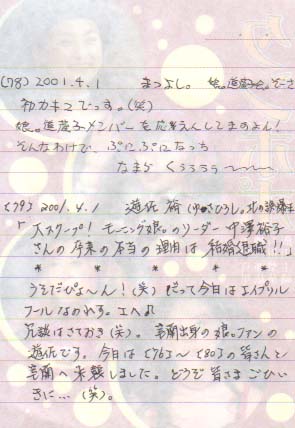 (78) 2001.4.1 まつよし。
初カキコでっす。(笑)
娘。道産子メンバーを応えんしてますのよん!
そんなわけで、ぷにぷになっち
なまら くぅぅぅぅ〜〜〜
(79) 2001.4.1 道佐 裕
「大スクープ! モーニング娘。のリーダー中澤裕子
さんの卒業の本当の理由は 結婚退職!!」
* * * * *
うそだぴょ〜ん!(笑) だって今日はエイプリル
フールなのれす。エヘ♪
冗談はさておき(笑)。室蘭出身の娘。ファンの
道佐です。今日は(76)〜(80)の皆さんと
室蘭へ来襲しました。どうぞ皆さまごひい
きに…(笑)。